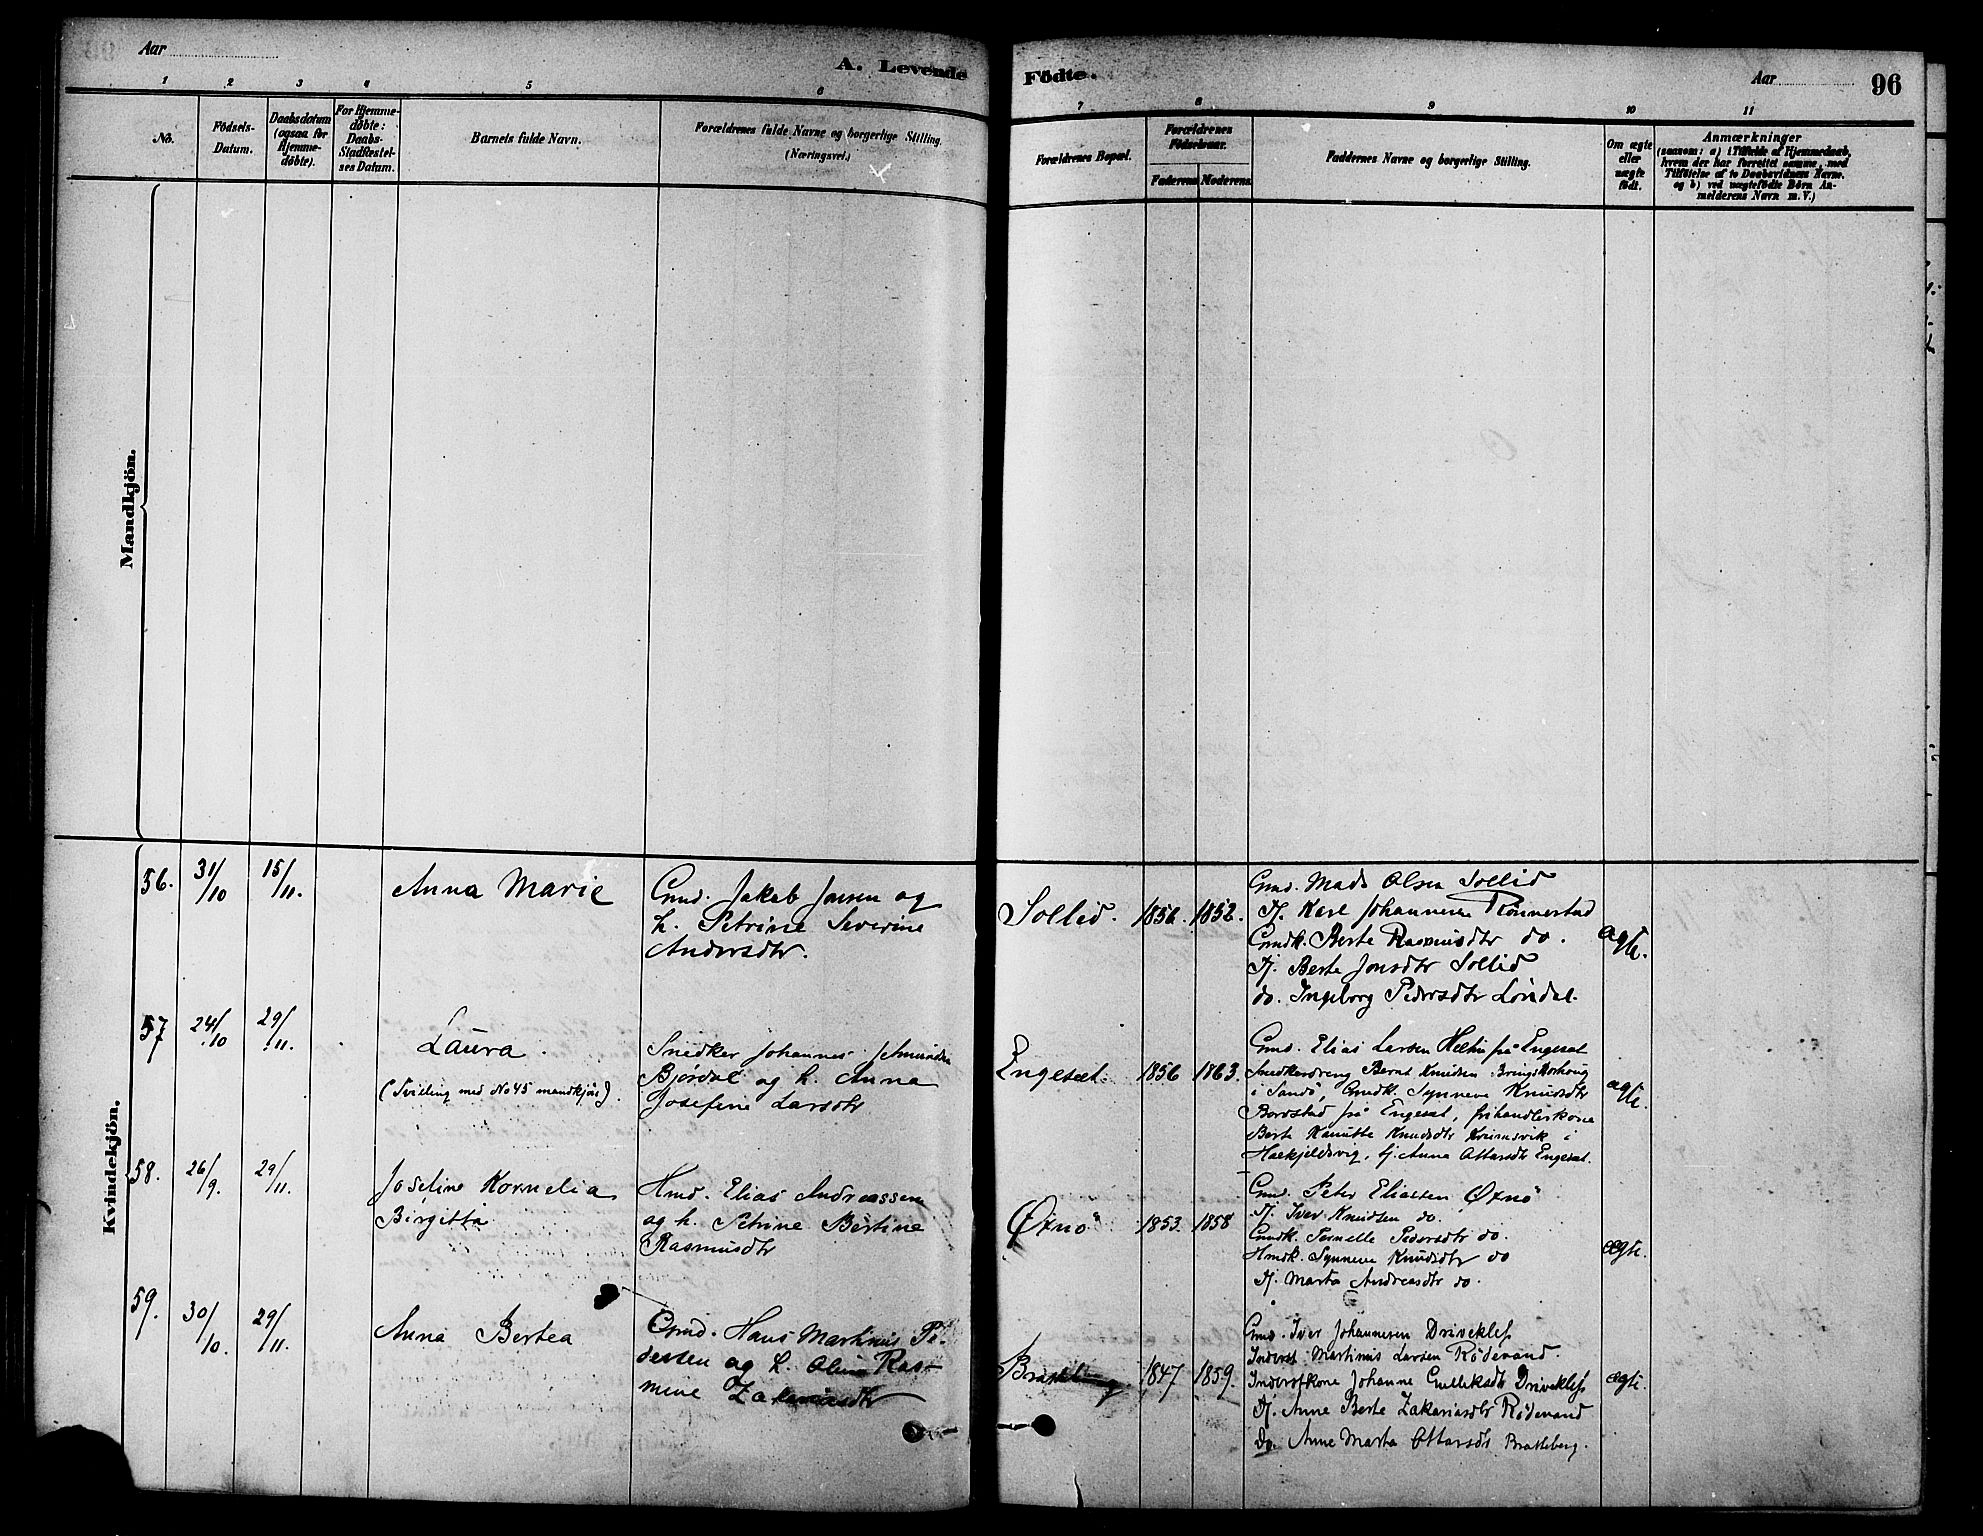 Aar
A. Levende Födte.
Aar
96
1 2 3 4 5 6 7 8 9 10 11
No.
Födsels-
Datum.
Daabsdatum
(ogsaa for
Hjemme-
døbte).
For Hjemme-
døbte:
Daabs-
Stadfæstel-
ses Datum.
Barnets fulde Navn.
Forældrenes fulde Navne og borgerlige Stilling.
(Næringsvei.)
Forældrenes Bopæl.
Forældrenes
Födselsaar.
Faderens Moderens.
Faddernes Navne og borgerlige Stilling.
Om ægte
eller
uægte
födt.
Anmærkninger
(saasom: a) i Tilfælde af Hjemmedaab,
hvem der har forrettet samme, med
Tilföielse af to Daabsvidners Navne.
og b) ved uægtefödte Börn An-
melderens Navn m. V.)
Mandkjön.
Kvindekjön.
56. 31/10 15/11.
Anna Marie
Gmd. Jakob Jonsen og
h. Petrine Severine
Andersdtr.
Sollid. 1856. 1852.
Gmd. Mads Olsen Sollid
Tj. Karl Johannesen Rönnestad
Gmdk. Berte Rasmusdtr do.
Tj. Berte Jonsdtr Sollid
do. Ingeborg Pedersdtr Lövdal.
ægte.
57 24/10 29/11.
Laura.
(Tvilling med No 45 mandkjön).
Snedker Johannes
Bjørdal og h. Anna
Josefine Larsdtr
Engeset. 1856 1863.
Gmd. Elias Larsen på Engeset
Snedkerdreng Bernt Knudsen
i Sandö, Gmdk. Synneve Knudsdtr
på Engeset, frihandlerkone
Berte Knudsdtr i
tj. Anna Ottarsdtr Engeset.
ægte.
58. 26/9. 29/11.
Josefine Kornelia
Birgitta
Hmd. Elias Andreassen
og h. Petrine Bertine
Rasmusdtr
Øxnö 1853. 1858
Gmd. Peter Eliassen Øxnö
Tj. Iver Knudsen do.
Gmdk. Pernelle Pedersdtr do.
Hmdk. Synneve Knudsdtr do
Tj. Marta Andreasdtr do.
ægte.
59. 30/10. 29/11.
Anna Bertea
Gmd. Hans Martinus Pe-
dersen og h. Oline Ras-
mine Zakariasdtr
Bratteberg 1847. 1859.
Gmd. Iver Johannesen Driveklep
Inderst Martinus Larsen Rödevand.
Inderstkone Johanne Driveklep
Tj. Anne Berte Zakariasdtr Rödevand
do. Anne Marta Ottarsdtr Bratteberg.
ægte.